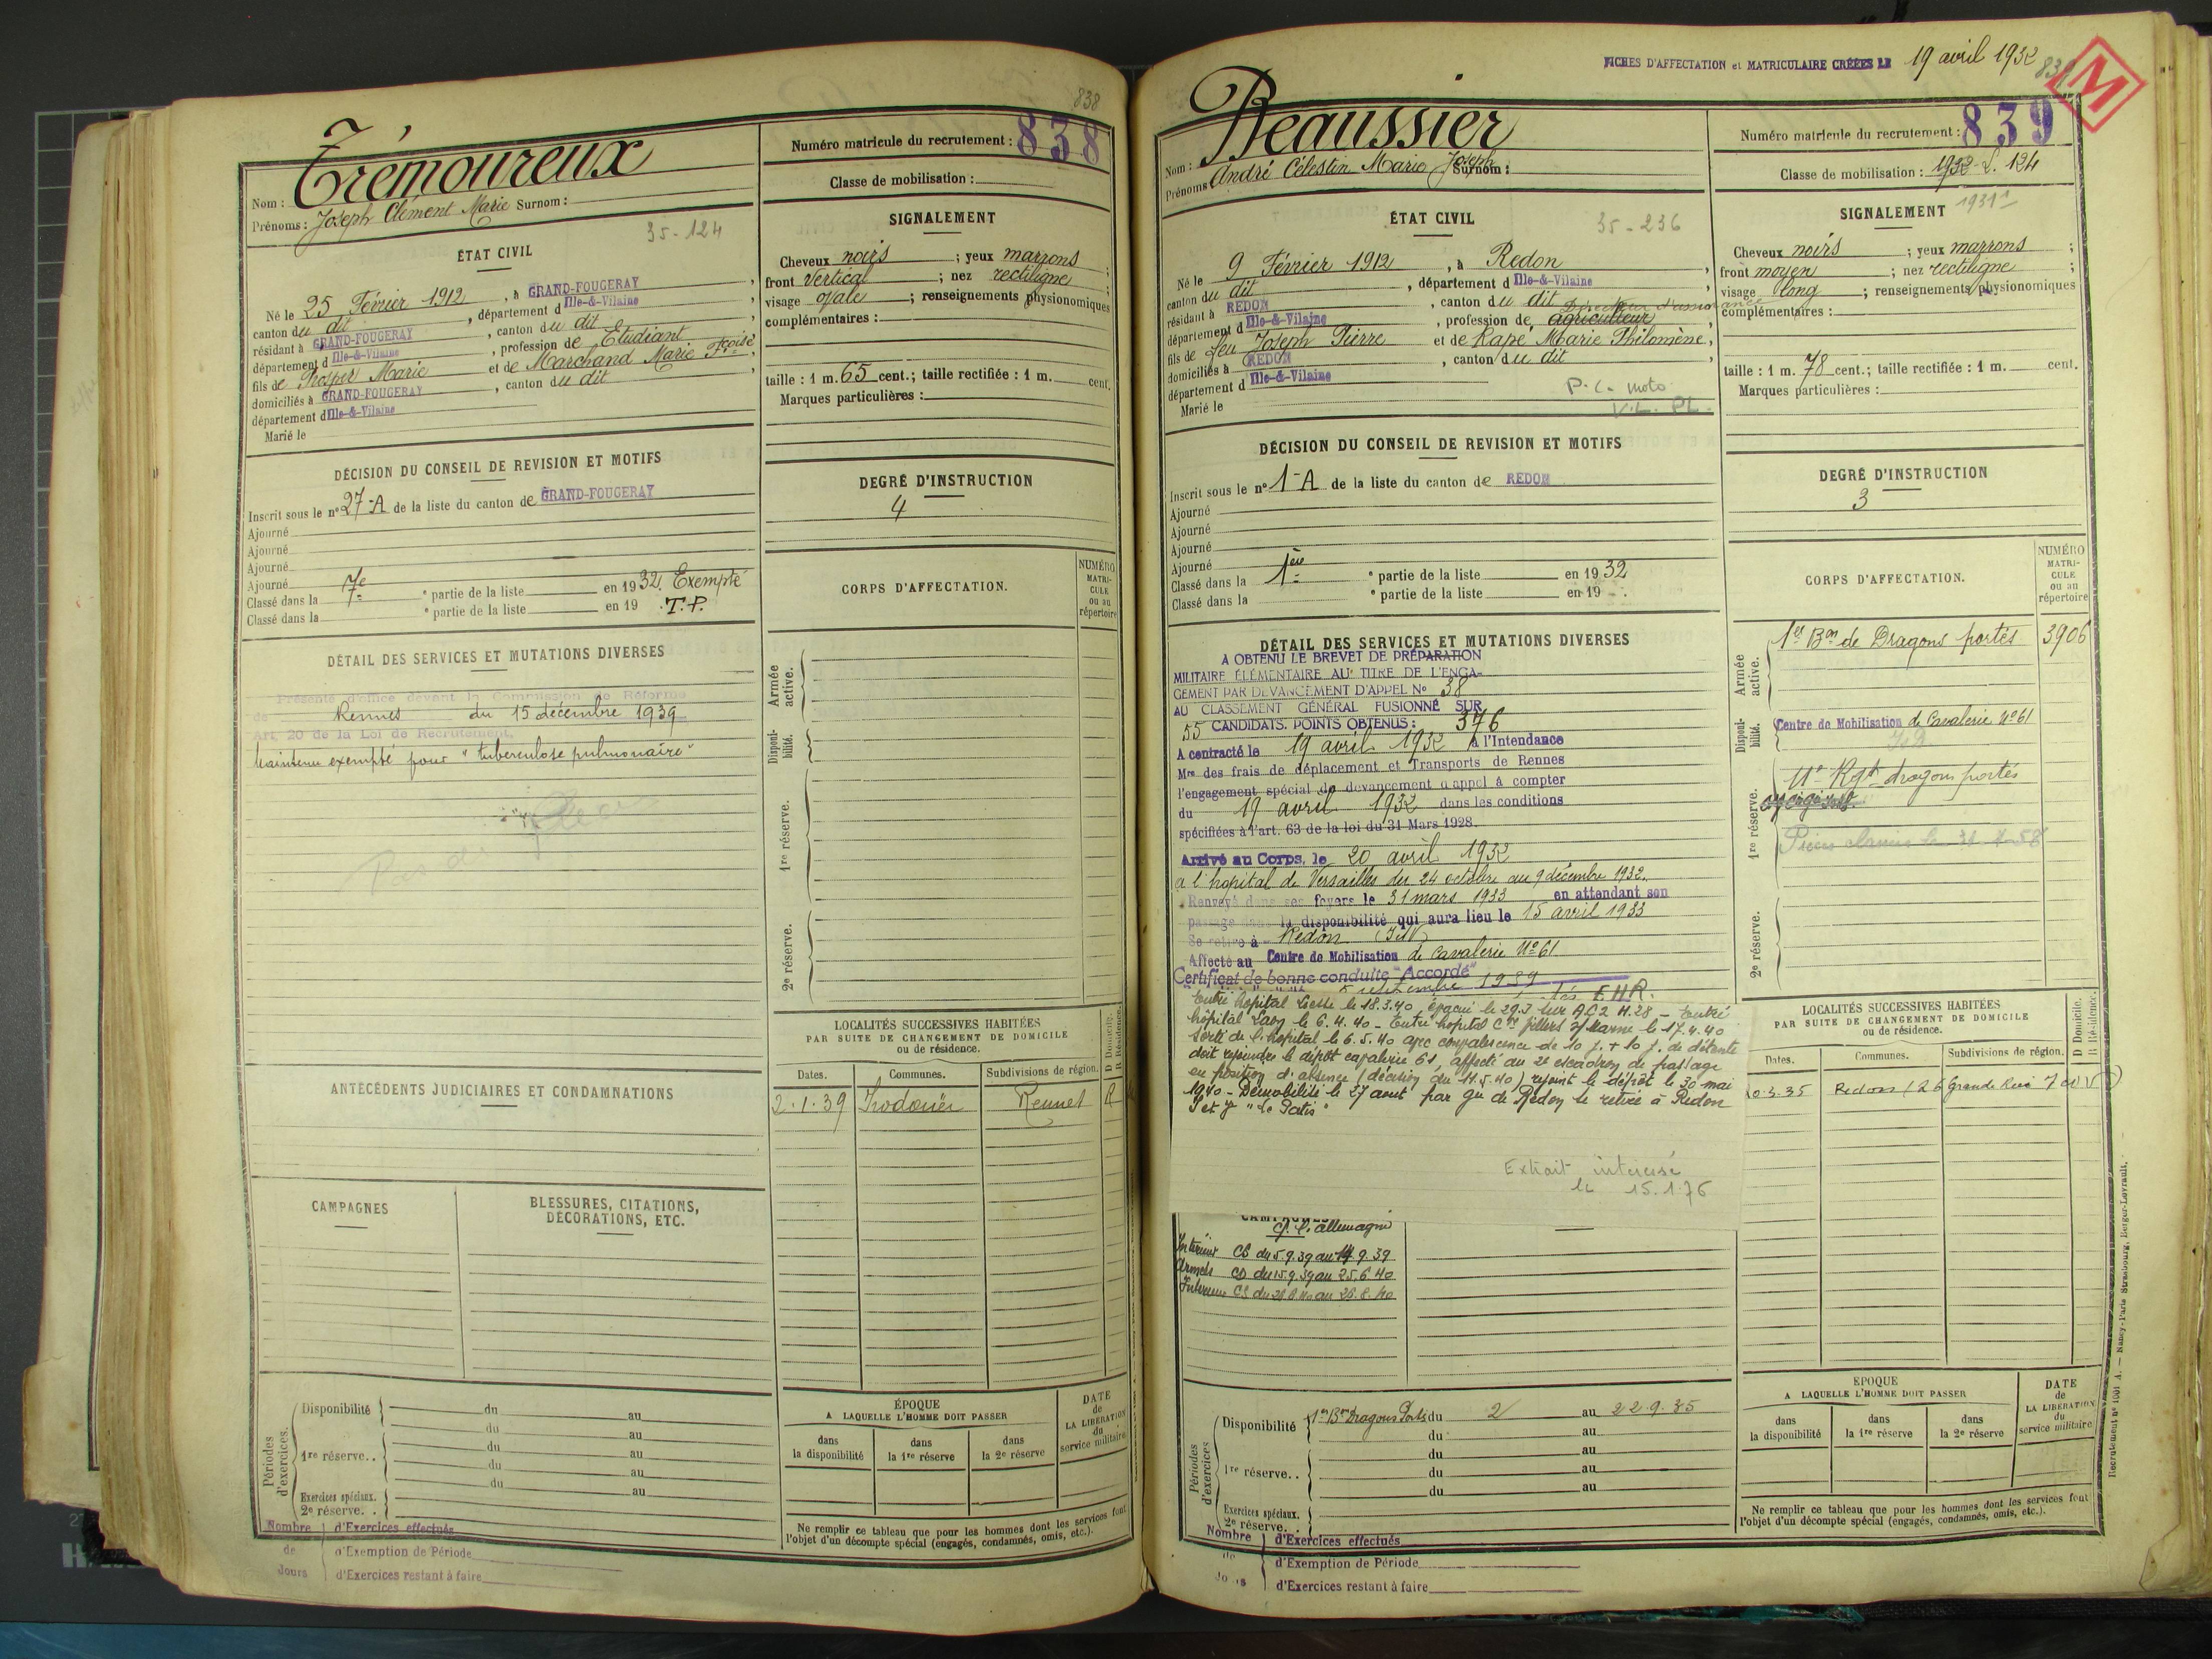 838
Trémoureux
Nom :
Prénoms : Joseph Clément Marie Surnom :
35-124
ÉTAT CIVIL
Né le 25 Février 1912, à GRAND-FOUGERAY,
canton du dit, département d Ille-&-Vilaine
résidant à GRAND-FOUGERAY, canton du dit,
département d Ille-&-Vilaine, profession de Etudiant
fils de Prosper Marie et de Marchand Marie Fçoise,
domiciliés à GRAND-FOUGERAY, canton du dit,
département d Ille-&-Vilaine
Marié le
DÉCISION DU CONSEIL DE REVISION ET MOTIFS
Inscrit sous le n° 27-A de la liste du canton de GRAND-FOUGERAY
Ajourné
Ajourné
Ajourné
Ajourné
Classé dans la 7e ° partie de la liste en 1932. Exempté
Classé dans la ° partie de la liste en 19 T.P.
DÉTAIL DES SERVICES ET MUTATIONS DIVERSES
Présenté d'office devant la Commission de Réforme
de Rennes du 15 décembre 1939
Art. 20 de la Loi de Recrutement.
Maintenu exempté pour "tuberculose pulmonaire"
ANTÉCÉDENTS JUDICIAIRES ET CONDAMNATIONS
CAMPAGNES
BLESSURES, CITATIONS,
DÉCORATIONS, ETC.
Périodes d'exercices.
Disponibilité du au
du au
1re réserve.. du au
du au
du au
Exercices spéciaux.
2e réserve. .
Nombre d'Exercices effectués
de d'Exemption de Période
Jours d'Exercices restant à faire
Numéro matricule du recrutement : 838
Classe de mobilisation :
SIGNALEMENT
Cheveux noirs ; yeux marrons ;
front vertical ; nez rectiligne ;
visage ovale ; renseignements physionomiques
complémentaires :
taille : 1 m. 65 cent.; taille rectifiée : 1 m. cent.
Marques particulières :
DEGRÉ D'INSTRUCTION
4
CORPS D'AFFECTATION.
NUMÉRO
MATRI-
CULE
ou au
répertoire
Armée active.
Disponi-bilité.
1re réserve.
2e réserve.
LOCALITÉS SUCCESSIVES HABITÉES
PAR SUITE DE CHANGEMENT DE DOMICILE
ou de résidence.
D Domicile.
R Résidence.
Dates. Communes. Subdivisions de région.
2.1.39 Irodouër Rennes R
ÉPOQUE
A LAQUELLE L'HOMME DOIT PASSER
DATE
de
LA LIBÉRATION
du
service militaire
dans la disponibilité
dans la 1re réserve
dans la 2e réserve
Ne remplir ce tableau que pour les hommes dont les services font
l'objet d'un décompte spécial (engagés, condamnés, omis, etc.).
FICHES D'AFFECTATION et MATRICULAIRE CRÉÉES LE 19 avril 1932
M
Beaussier
Nom :
Prénoms André Célestin Marie Joseph Surnom :
ÉTAT CIVIL
35-236
Né le 9 Février 1912, à Redon,
canton du dit, département d Ille-&-Vilaine
résidant à REDON, canton du dit
Directeur d'assurance
département d Ille-&-Vilaine, profession de agriculteur,
fils de feu Joseph Pierre et de Rapé Marie Philomène,
domiciliés à REDON, canton du dit,
département d Ille-&-Vilaine
Marié le
P.C. moto
V.L. PL.
DÉCISION DU CONSEIL DE REVISION ET MOTIFS
Inscrit sous le n° 1-A de la liste du canton de REDON
Ajourné
Ajourné
Ajourné
Ajourné
Classé dans la 1ère ° partie de la liste en 1932
Classé dans la ° partie de la liste en 19
DÉTAIL DES SERVICES ET MUTATIONS DIVERSES
A OBTENU LE BREVET DE PRÉPARATION
MILITAIRE ÉLÉMENTAIRE AU TITRE DE L'ENGA-
GEMENT PAR DEVANCEMENT D'APPEL N° 38
AU CLASSEMENT GÉNÉRAL FUSIONNÉ SUR
55 CANDIDATS. POINTS OBTENUS : 376
A contracté le 19 avril 1932 à l'Intendance
Mre des frais de déplacement et Transports de Rennes
l'engagement spécial de devancement d'appel à compter
du 19 avril 1932 dans les conditions
spécifiées à l'art. 63 de la loi du 31 Mars 1928.
Arrivé au Corps, le 20 avril 1932
a l'hopital de Versailles du 24 octobre au 9 décembre 1932.
Renvoyé dans ses foyers le 31 mars 1933 en attendant son
passage dans la disponibilité qui aura lieu le 15 avril 1933
Se retire à Redon (I&V)
Affecté au Centre de Mobilisation de Cavalerie N°61
Certificat de bonne conduite "Accordé"
septembre 1939
E H R.
Entré hopital Liesse le 18.3.40, évacué le 29.3 sur A.C.2 H.28 - Entré
hôpital Laon le 6.4.40 - Entré hopital Cre Villers s/Marne le 17.4.40
sorti de l'hopital le 6.5.40 avec convalescence de 10 j. + 10 j. de détente
doit rejoindre le dépôt cavalerie 61, affecté au 2e escadron de passage
en position d'absence (décision du 11.5.40) rejoint le dépôt le 30 mai
1940 - Démobilisé le 27 aout par Gu de Redon se retire à Redon
I et V "Le Patis"
Extrait intéressé
le 15.1.76
CAMPAGNES
c/ l'allemagne
Intérieur CS du 5.9.39 au 14.9.39
Armées CD du 15.9.39 au 25.6.40
Intérieur CS du 26.6.40 au 28.8.40
Périodes d'exercices
Disponibilité 1er Bon Dragons Portés du 2 au 22.9.35
du au
du au
1re réserve.. du au
du au
Exercices spéciaux.
2e réserve. .
Nombre d'Exercices effectués
de d'Exemption de Période
Jours d'Exercices restant à faire
Numéro matricule du recrutement : 839
Classe de mobilisation : 1932-S. 124
1931
SIGNALEMENT
Cheveux noirs ; yeux marrons ;
front moyen ; nez rectiligne ;
visage long ; renseignements physionomiques
complémentaires :
taille : 1 m. 78 cent.; taille rectifiée : 1 m. cent.
Marques particulières :
DEGRÉ D'INSTRUCTION
3
CORPS D'AFFECTATION.
NUMÉRO
MATRI-
CULE
ou au
répertoire
Armée active.
1er Bon de Dragons portés 3906
Disponi-bilité.
Centre de Mobilisation de Cavalerie N°61
1re réserve.
11e Rgt dragons portés
2e réserve.
LOCALITÉS SUCCESSIVES HABITÉES
PAR SUITE DE CHANGEMENT DE DOMICILE
ou de résidence.
D Domicile.
R Résidence.
Dates. Communes. Subdivisions de région.
10.3.35 Redon (26 Grande Rue I et V)
ÉPOQUE
A LAQUELLE L'HOMME DOIT PASSER
DATE
de
LA LIBÉRATION
du
service militaire
dans la disponibilité
dans la 1re réserve
dans la 2e réserve
Ne remplir ce tableau que pour les hommes dont les services font
l'objet d'un décompte spécial (engagés, condamnés, omis, etc.).
Recrutement n° 1001 A. — Nancy-Paris-Strasbourg, Berger-Levrault.